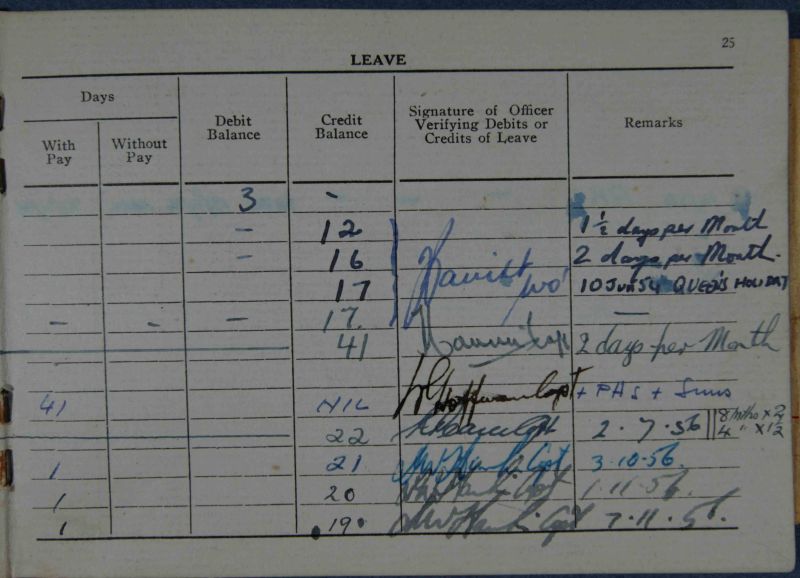 25
LEAVE
Days
With Pay
Without Pay
Debit Balance
Credit Balance
Signature of Officer Verifying Debits or Credits of Leave
Remarks
3 -
- 12 1½ days per Month
- 16 2 days per Month.
17 10 Jun 54 QUEEN'S HOLIDAY
- - - 17. -
41 2 days per Month
41 NIL Hoffman Capt + PHS + Suns
22 Capt 2.7.56 8 mths x 2
4 " x ½
1 21 Capt 3.10.56.
1 20 Capt 1.11.56.
1 19 Capt 7.11.56.